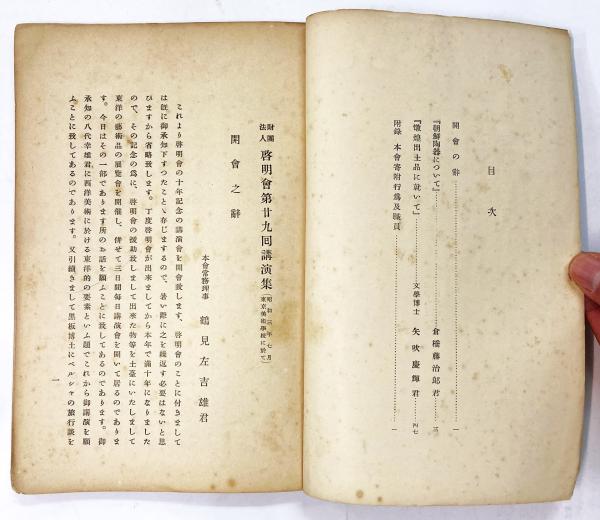 目次
開會の辭……一
『朝鮮陶器について』……倉橋藤治郎君……三
『燉煌出土品に就いて』……文學博士 矢吹慶輝君……四七
附錄 本會寄附行爲及職員……一
財團法人 啓明會第廿九回講演集(昭和三年七月東京美術學校に於て)
開會之辭
本會常務理事 鶴見左吉雄君
これより啓明會の十年記念の講演會を開會致します。啓明會のことに付きまして
は既に御承知下すつたことゝ存じますので、暑い際に之を繰返す必要はないと思
ひますから省略致します。丁度啓明會が出來ましてから本年で滿十年になりました
ので、その記念の爲に、啓明會の援助致しまして出來た物等を土臺にいたしまして
東洋の藝術品の展覽會を開催し、併せて三日間每日講演會を開いて居るのでありま
す。今日はその一部であります所のお話を願ふことに致してあるのであります。御
承知の八代幸雄君に西洋美術に於ける東洋的の要素といふ題でこれから御講演を願
ふことに致してあるのであります。又引續きまして黑板博士にペルシヤの旅行談を
一